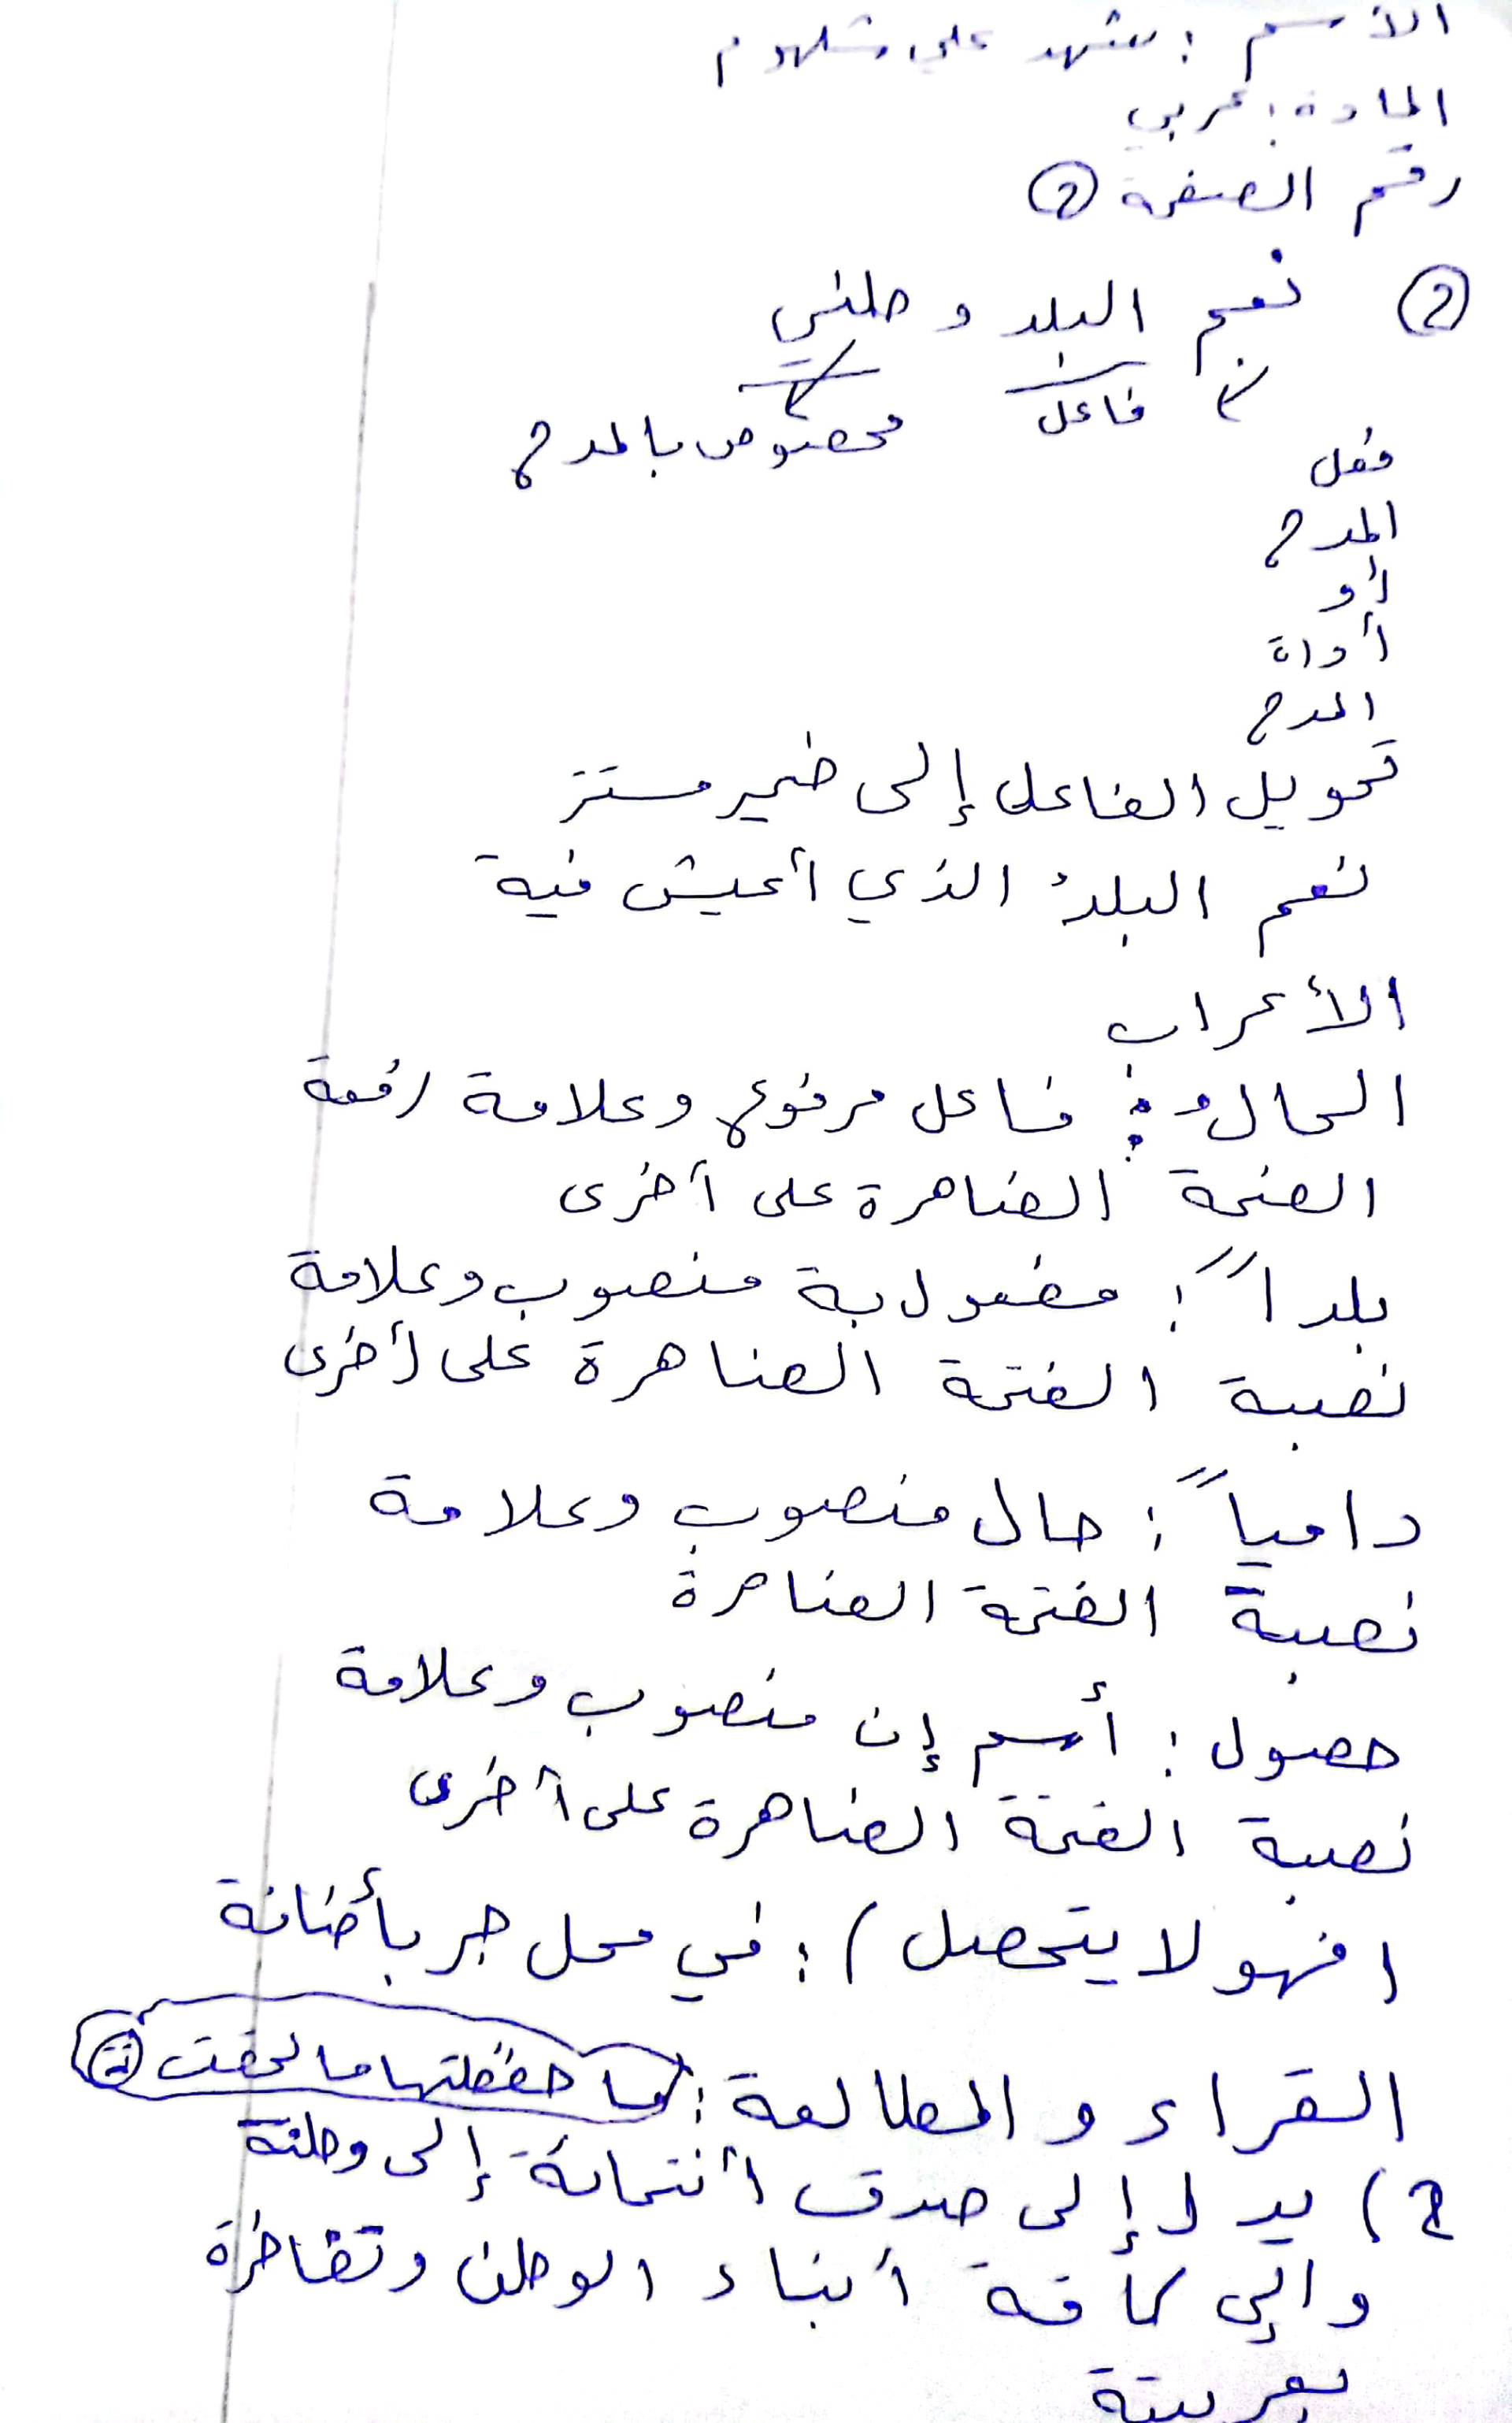 الأسم : شهد علي شلهوم
المادة : عربي
رقم الصفحة (2)
(2) نعم البلد وطني
فاعل
مخصوص بالمدح
فعل
المدح
أو
أداة
المدح
تحويل الفاعل إلى ضمير مستتر
نعم البلدُ الذي أعيش فية
الأعراب
الحالُ : فاعل مرفوع وعلامة رفعة
الضمة الضاهرة على آخرى
بلداً : مفعول بة منصوب وعلامة
نصبة الفتحة الضاهرة على أخرى
دامياً : حال منصوب وعلامة
نصبة الفتحة الضاهرة
حصول : أسم إن منصوب وعلامة
نصبة الفتحة الضاهرة على آخرى
(فهو لا يتحصل) : في محل جر بأضافة
القراء و المطالعة : ما حفظتها ما لحقت
2) يدل إلى صدق أنتمائة إلى وطنة
وإلى كافة أبناء الوطن وتفاخرة
بعربيتة